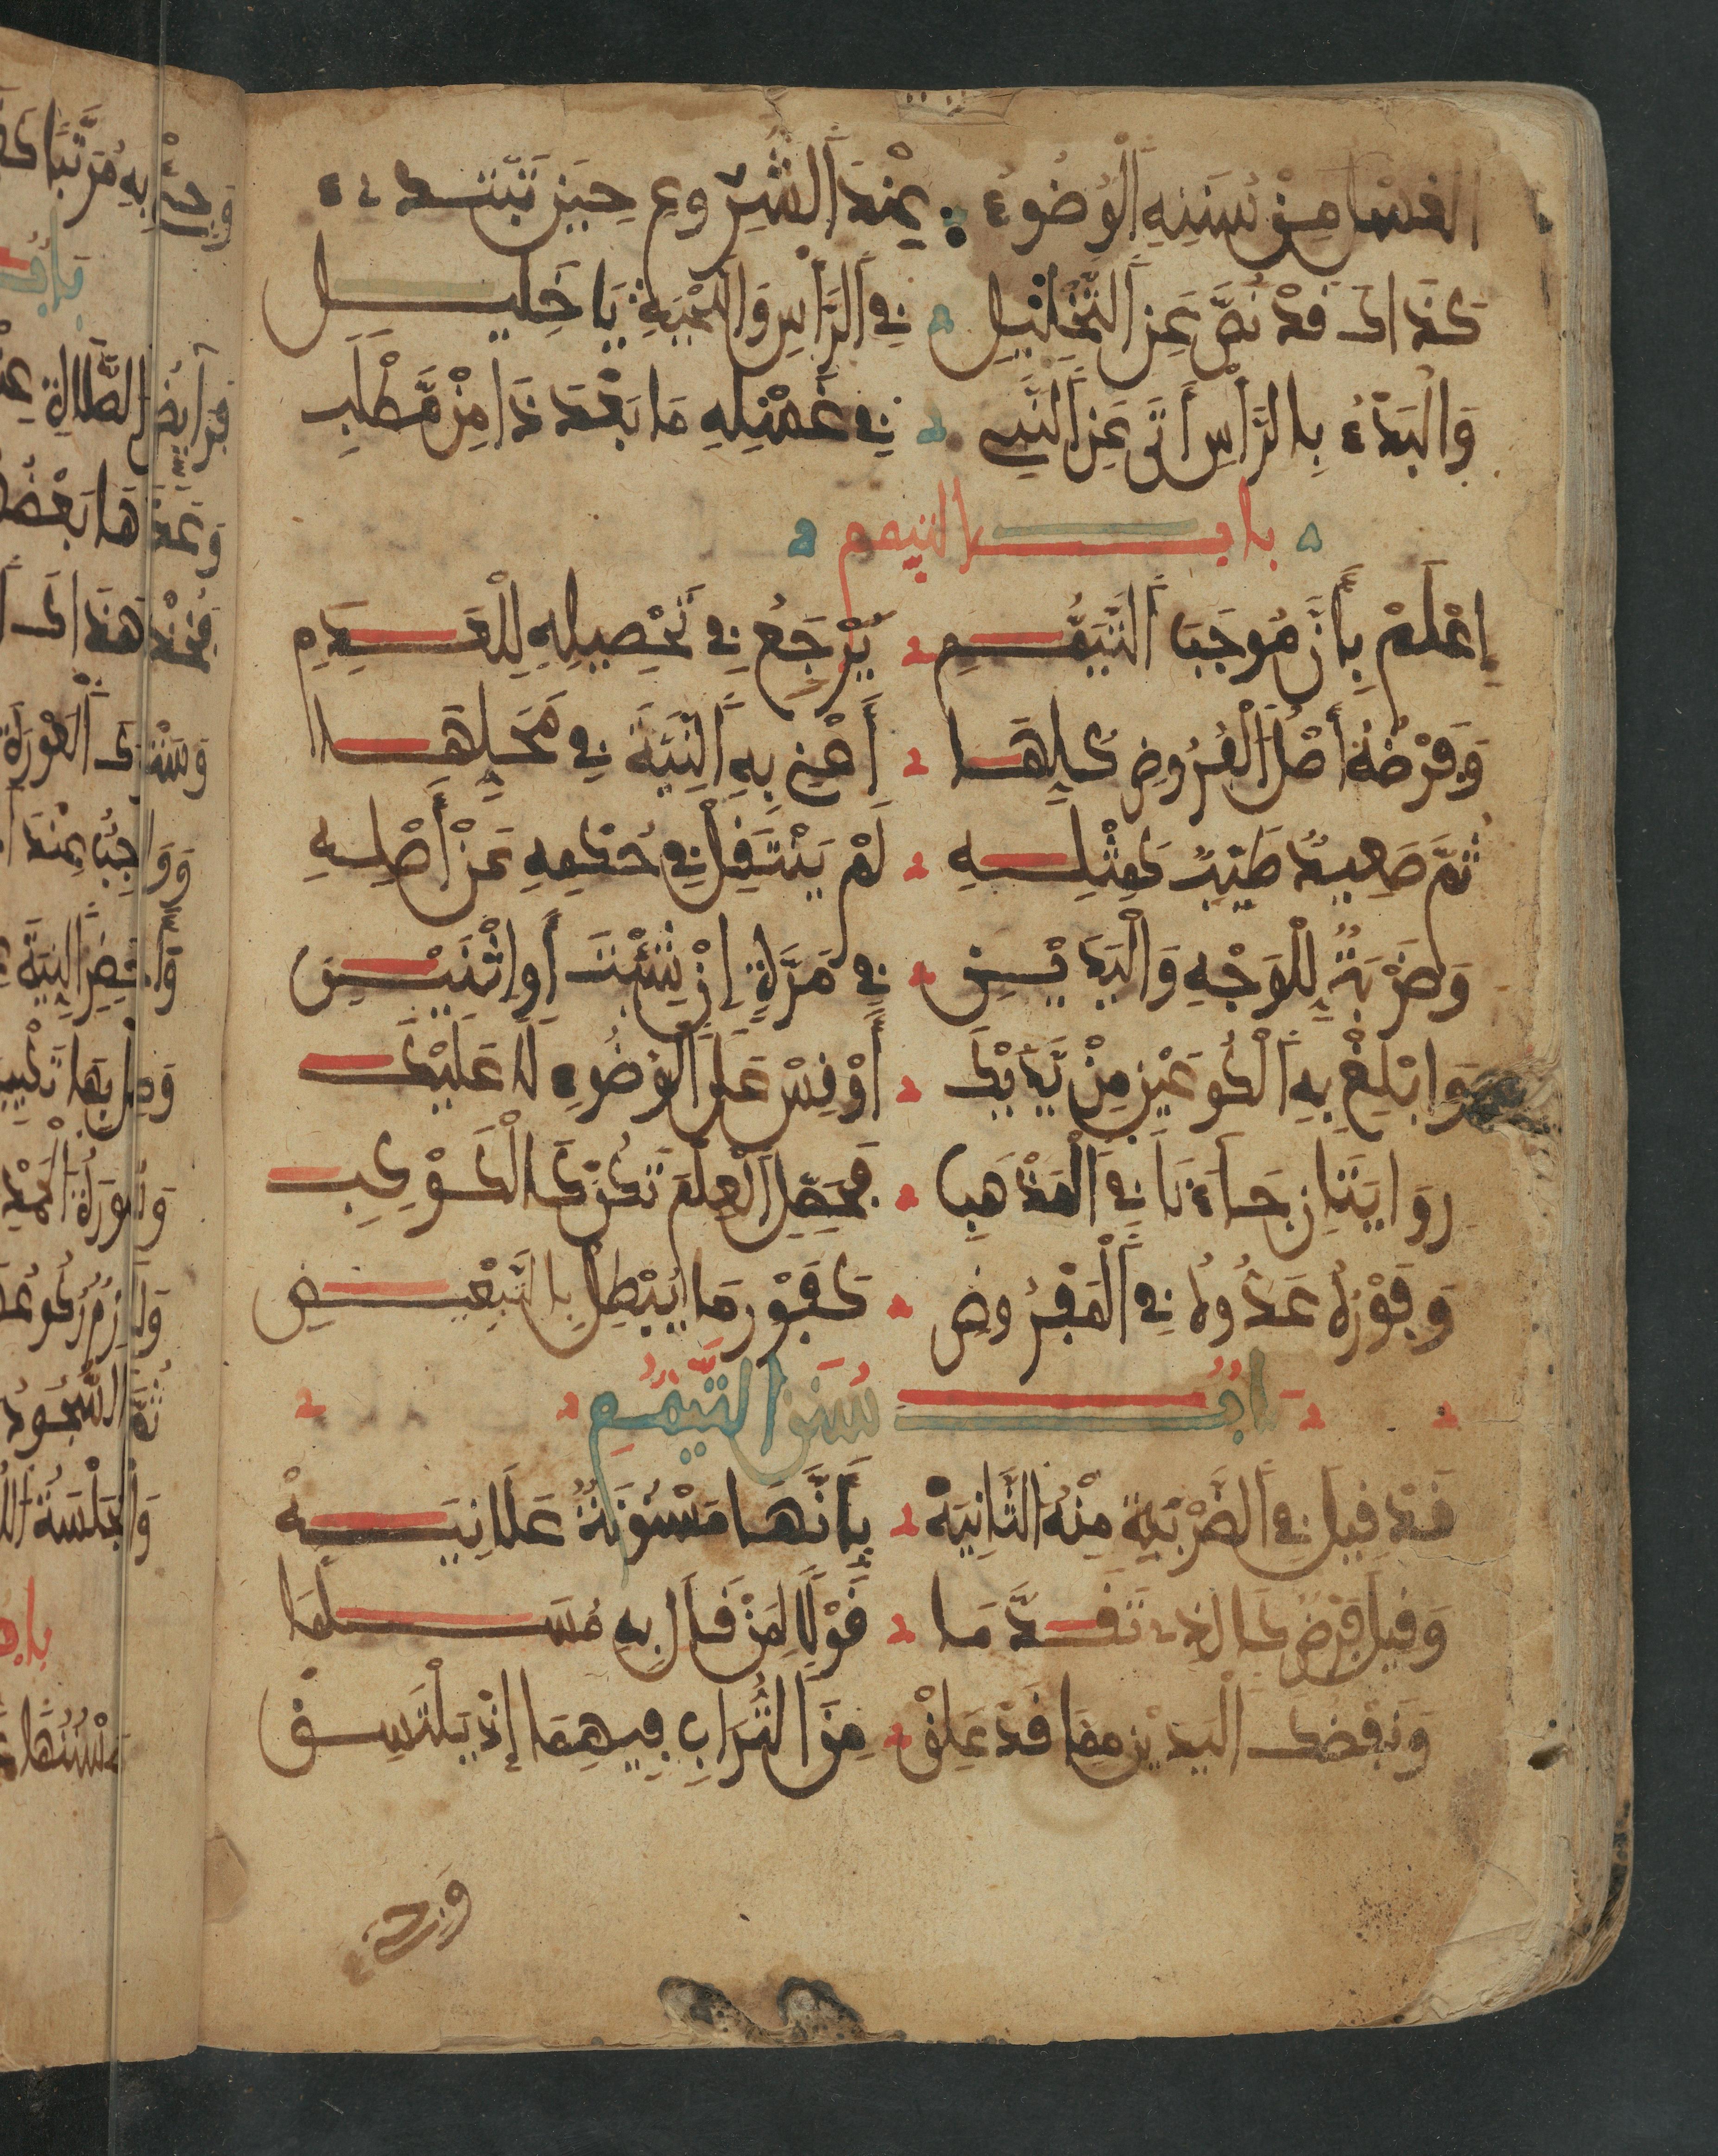 الغسل من سننه الوضوء عِنْدَ الشروع حين تبتدء
كذاك قد نص عن التخليل في الرأس واللحية يا خليل
وَالْبَدْءُ بالرأس أتى عن النبي في غسله ما بعد ذا من مطلب
باب التيمم
إعلم بأن موجب التيمم يرجع في تحصيله للعدم
وفرضه أصل الفروض كلها أعني به النية في محلها
ثم صعيد طيب كمثله لم ينتقل في حكمه عن أصله
وضربة للوجه واليدين في مرة إن شئت أو اثنين
وابلغ به الكوعين من يديك أو قس على الوضوء لا عليك
روايتان جاءنا في المذهب فحصل العلم تكن كالكوكب
وفوره عدوه في المفروض كفور ما يبطل بالتبعيض
باب سنن التيمم
قد قيل في الضربة منه الثانية بأنها مسنونة علانيه
وقيل فرض كالذي تقدما قولا لمن قال به مسلما
ونفضك اليدين مما قد علق من التراب فيهما إذ يلتسق
وَجّ بِهِ مرتبا
باب
فرائض الصلاة
هَا بعض
هذاك
العورة
وواجب عند
النية
وصل بها
وَسورة الحمد
ثم السجود
والجلسة
باب